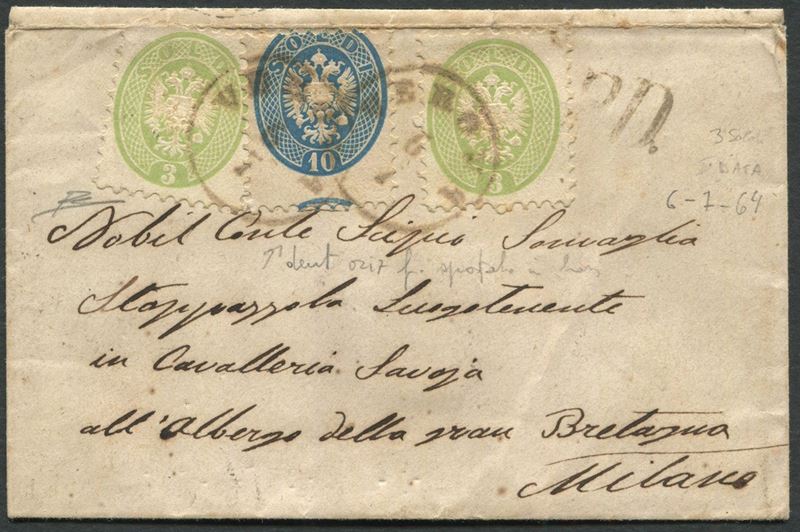 SOLDI 3
SOLDI 10
SOLDI 3
P.D.
3 Soldi
Iª DATA
6-7-64
Nobil Conte Scipio Somaglia
Stoppazzola Luogotenente
in Cavalleria Savoja
all'Albergo della gran Bretagna
Milano